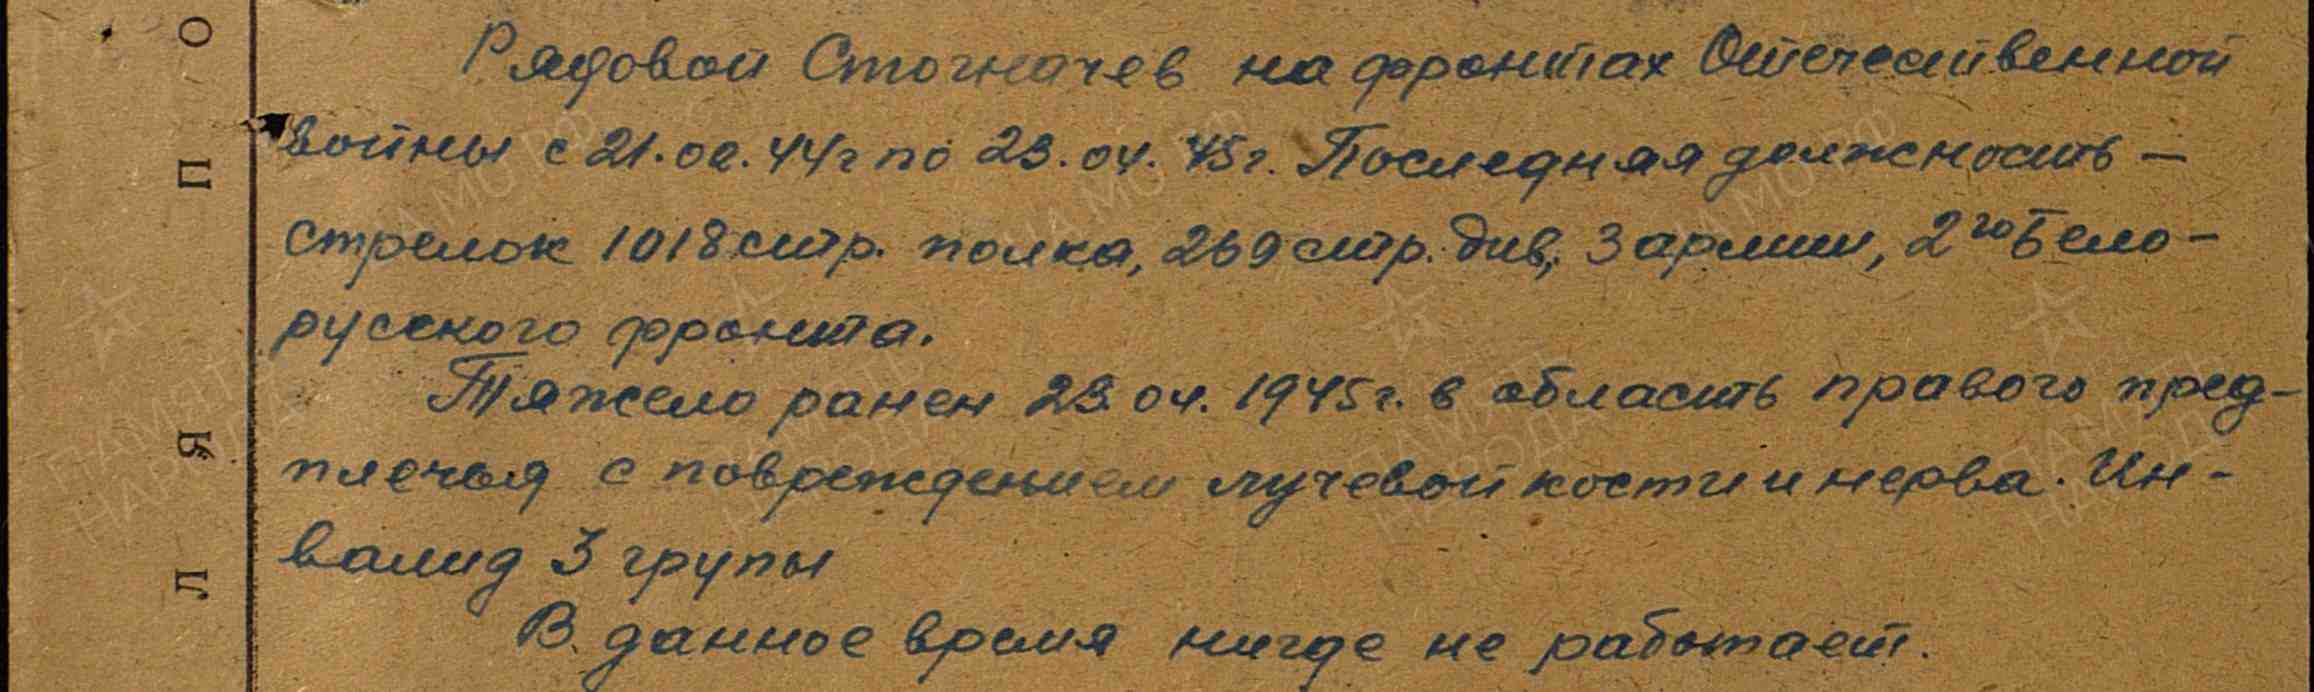 Рядовой Стогначев на фронтах Отечественной
войны с 21.06.44г по 23.04.45г. Последняя должность –
стрелок 1018 стр. полка, 269 стр. див, 3 армии, 2го Бело-
русского фронта.
Тяжело ранен 23.04.1945г. в область правого пред-
плечья с повреждением лучевой кости и нерва. Ин-
валид 3 групы
В данное время нигде не работает.
О
П
Я
Л
ПАМЯТЬ НАРОДА
ЦА МО РФ